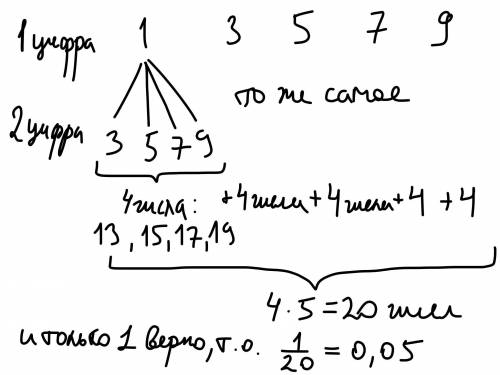 1 цифра 1 3 5 7 9
то же самое
2 цифра 3 5 7 9
4 числа: +4 числа+4 числа+4 +4
13, 15, 17, 19
4·5=20 чисел
и только 1 верно, т.о. 1/20 = 0,05